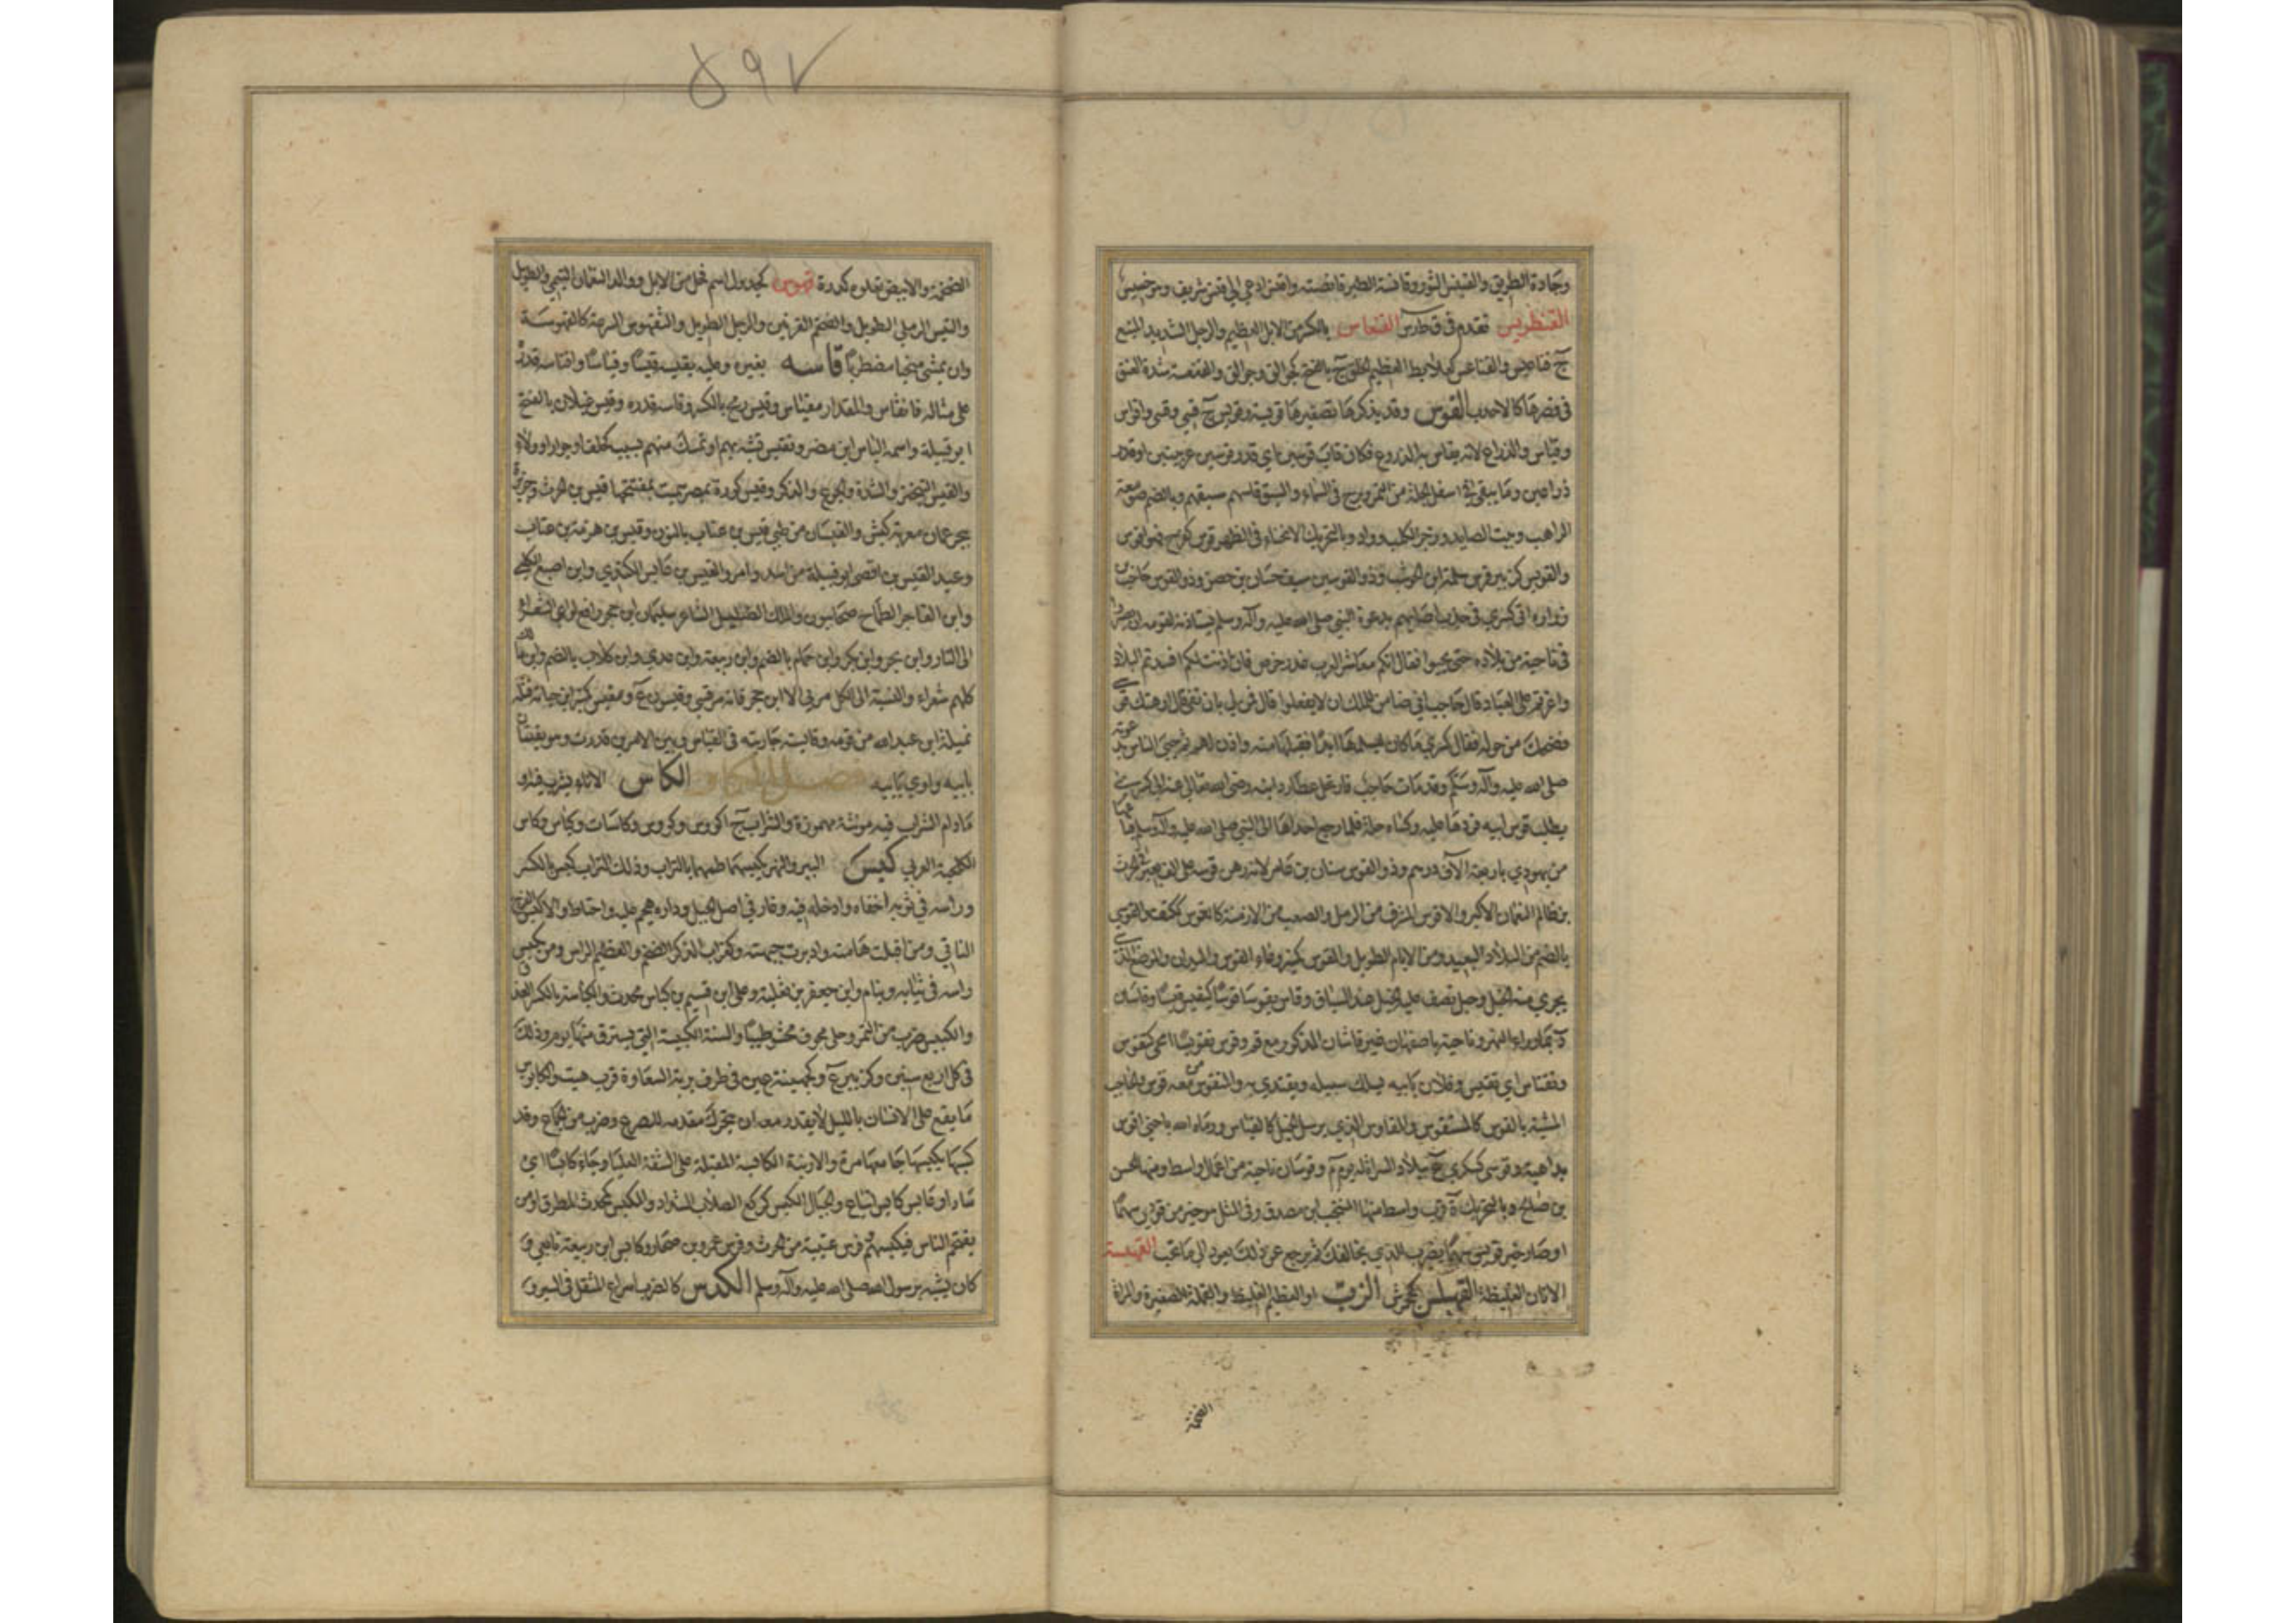 وجادة الطريق والقنس الثور وقانسة الطير قانصته واقنس ادعى الى قنس شريف وهو خسيس
القنطريس تقدم في قحارس القنعاس بالكسر من الابل العظيم والرجل الشديد المنيع
ج قناعيس والقناعس كعلابط العظيم الخلق ج بالفتح كجوالق وجوالق والقنعسة شدة العنق
في قصرها كالاحدب القوس وقد يذكر ها تصغيرها قويسة وقويس ج قسي وقسي واقواس
وقياس والذراع لانه يقاس به المذروع فكان قاب قوسين اي قدر قوسين عربيتين او قدر
ذراعين وما يبقى في اسفل الجلة من التمر وبرج في السماء والسبق قاسهم سبقهم وبالضم صومعة
الراهب وبيت الصايد وزجر الكلب وواد وبالتحريك الانحناء في الظهر قوس كفرح فهو اقوس
والقويس كزبير فرس سلمة ابن الحوشب وذو القوسين سيف حسان بن حصن وذو القوس حاجب بن
زرارة اتى كسرى في جدب اصابهم بدعوة النبي صلى الله عليه وآله وسلم يستاذنه لقومه ان يصيروا
في ناحية من بلاده حتى يحيوا فقال انكم معاشر العرب غدر حرص فان اذنت لكم افسدتم البلاد
واغرتم على العباد قال حاجب اني ضامن للملك ان لا يفعلوا قال فمن لي بان تفي قال ارهنك قوسي
فضحك من حوله فقال كسرى ما كان ليسلمها ابدا فقبلها منه واذن لهم ثم حيي الناس بدعوته
صلى الله عليه وآله وسلم وقد مات حاجب فارتحل عطارد ابنه رضي الله تعالى عنه الى كسرى
يطلب قوس ابيه فردها عليه وكساه حلة فلما رجع اهداها الى النبي صلى الله عليه وآله وسلم فباعها
من يهودي باربعة آلاف درهم وذو القوس سنان بن عامر لانه رهن قوسه على الف بعير في الحرث
بن ظالم النعمان الاكبر والاقوس المشرف من الرمل والصعب من الازمنة كالقوس ككتف والقوسي
بالضم من البلاد البعيد ومن الايام الطويل والمقوس كمنبر وعاء القوس والميدان والموضع الذي
يجري منه الخيل وحبل تصف عليه الخيل عند السباق وقاس يقوس قوسا كيقيس قيسا وقاسان
د بما وراء النهر وناحية باصفهان غير قاشان المذكور مع قم وقوس تقويسا انحنى كتقوس
وتقتاس اي تقتيس وفلان بابيه يسلك سبيله ويقتدي به والمتقوس من معه قوس والحاجب
المشبه بالقوس كالمستقوس والمقاوس الذي يرسل الخيل كالقياس ورماه الله باحنى اقوس
بداهية وقوسى كسكرى ع ببلاد السراة له يوم م وقوسان ناحية من اعمال واسط ومنها الحسن
بن صالح و بالتحريك ة قرب واسط منها المنتجب ابن مصدق وفي المثل هو خير من قويس سهما
او صار خير قويس سهما يضرب للذي يخالفك ثم يرجع عن ذلك يعود الى ما تحب القهبسة
الاتان الغليظة القهبلس كجحمرش الزب او العظيم الغليظ والقملة الصغيرة والمراة
الضخمة
٥٩٧
الضخمة والابيض تعلوه كدرة قهوس كجدول اسم فحل من الابل ووالد النعمان التيمي والطويل
والتيس الرملي الطويل والضخم القرنين والرجل الطويل والتقهوس السرعة كالقهوسة
وان يمشي منحنيا مضطربا قاسه بغيره وعليه يقيسه قيسا وقياسا واقتاسه قدره
على مثاله فانقاس والمقدار مقياس وقيس رمح بالكسر وقاسه قدره وقيس عيلان بالفتح
ابو قبيلة واسمه الناس ابن مضر وتقيس تشبه بهم او تمسك منهم بسبب كحلف او جوار او ولاء
والقيس التبختر والشدة والجوع والذكر وقيس كورة بمصر سميت بمفتتحها قيس بن الحرث وجزيرة
ببحر عمان معربة كيش والقيسان من طي قيس بن عناب بالنون وقيس بن هزمة بن عناب
وعبد القيس بن افصى ابو قبيلة من اسد وامرؤ القيس بن عابس الكندي وابن اصبغ الكلبي
وابن الفاخر الطماح صحابيون والملك الضليل الشاعر سليمان ابن حجر رافع لواء الشعراء
الى النار وابن بحر وابن بكر وابن حمام بالضم وابن ربيعة وابن عدي وابن كلاب بالضم وابن مالك
كلهم شعراء والنسبة الى الكل مرئي الا ابن حجر فانه مرقسي وقيسون ع ومقيس كمنبر ابن حبابة قتله
نميلة ابن عبد الله من قومه وقايسته جاريته في القياس وبين الامرين قدرت وهو يقتاس
بابيه واوي يايي فصل الكاف الكاس الاناء يشرب فيه او
ما دام الشراب فيه مونثة مهموزة والشراب ج اكؤس وكؤوس وكاسات وكئاس وكاس
الكلحبة العرني كبس البير والنهر يكبسهما طمهما بالتراب وذلك التراب كبس بالكسر
وراسه في ثوبه اخفاه وادخله فيه وغار في اصل الجبل وداره هجم عليه واحتاط والاكبس الفرج
الناتي ومن اقبلت هامته وادبرت جبهته وكغراب الذكر الضخم والعظيم الراس ومن يكبس
راسه في ثيابه وينام وابن جعفر بن ثعلبة وعلي ابن قسيم بن كباس محدث والكباسة بالكسر العذق
والكبيس ضرب من التمر وحلي مجوف محشو طيبا والسنة الكبيسة التي يسترق منها يوم وذلك
في كل اربع سنين وكزبير ع وكجهينة عين في طرف برية السماوة قرب هيت والكابوس
ما يقع على الانسان بالليل لا يقدر معه ان يتحرك مقدمة للصرع وضرب من الجماع وقد
كبسها يكبسها جامعها مرة والارنبة الكابسة المقبلة على الشفة العليا وجاء كابسا اي
شادا وعابس كابس اتباع والجبال الكبس كركع الصلاب الشداد والمكبس كمحدث المطرق او من
يقتحم الناس فيكبسهم فرس عتيبة من الحرث وفرس عمرو بن صحار وكابس ابن ربيعة تابعي و
كان يشبه برسول الله صلى الله عليه وآله وسلم الكدس كالضرب اسراع المثقل في السير و